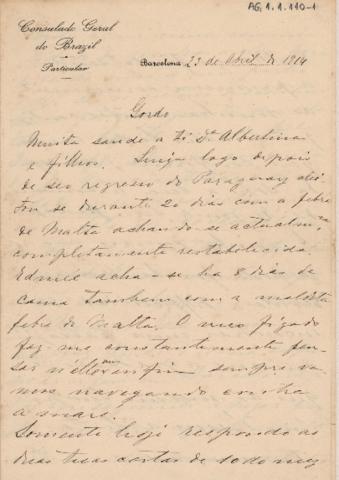 AG.1.1.110-1
Consulado Geral
do Brazil
Particular
Barcelona, 23 de Abril de 1914
Gordo
Muita saude a ti Dª Albertina
e filhos. logo depois
de seu regresso do Paraguay
se durante 20 dias com a febre
de Malta achando-se actualmte
completamente restabelecida.
Edmée acha-se ha 8 dias de
cama tambem com a maldita
febre de Malta. O meu figado
faz-me constantemente pen-
sar n'elle enfim sempre va-
mos navegando contra
a maré.
Somente hoje respondo as
duas tuas cartas de 10 do mez